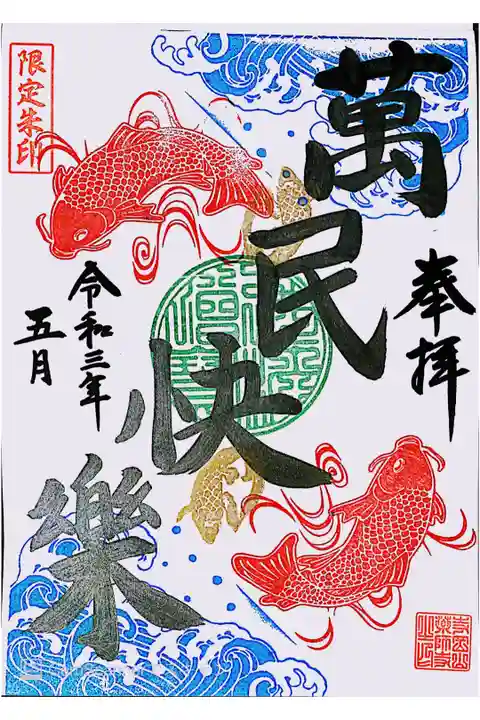 奉拝
萬民快樂
令和三年
五月
限定朱印